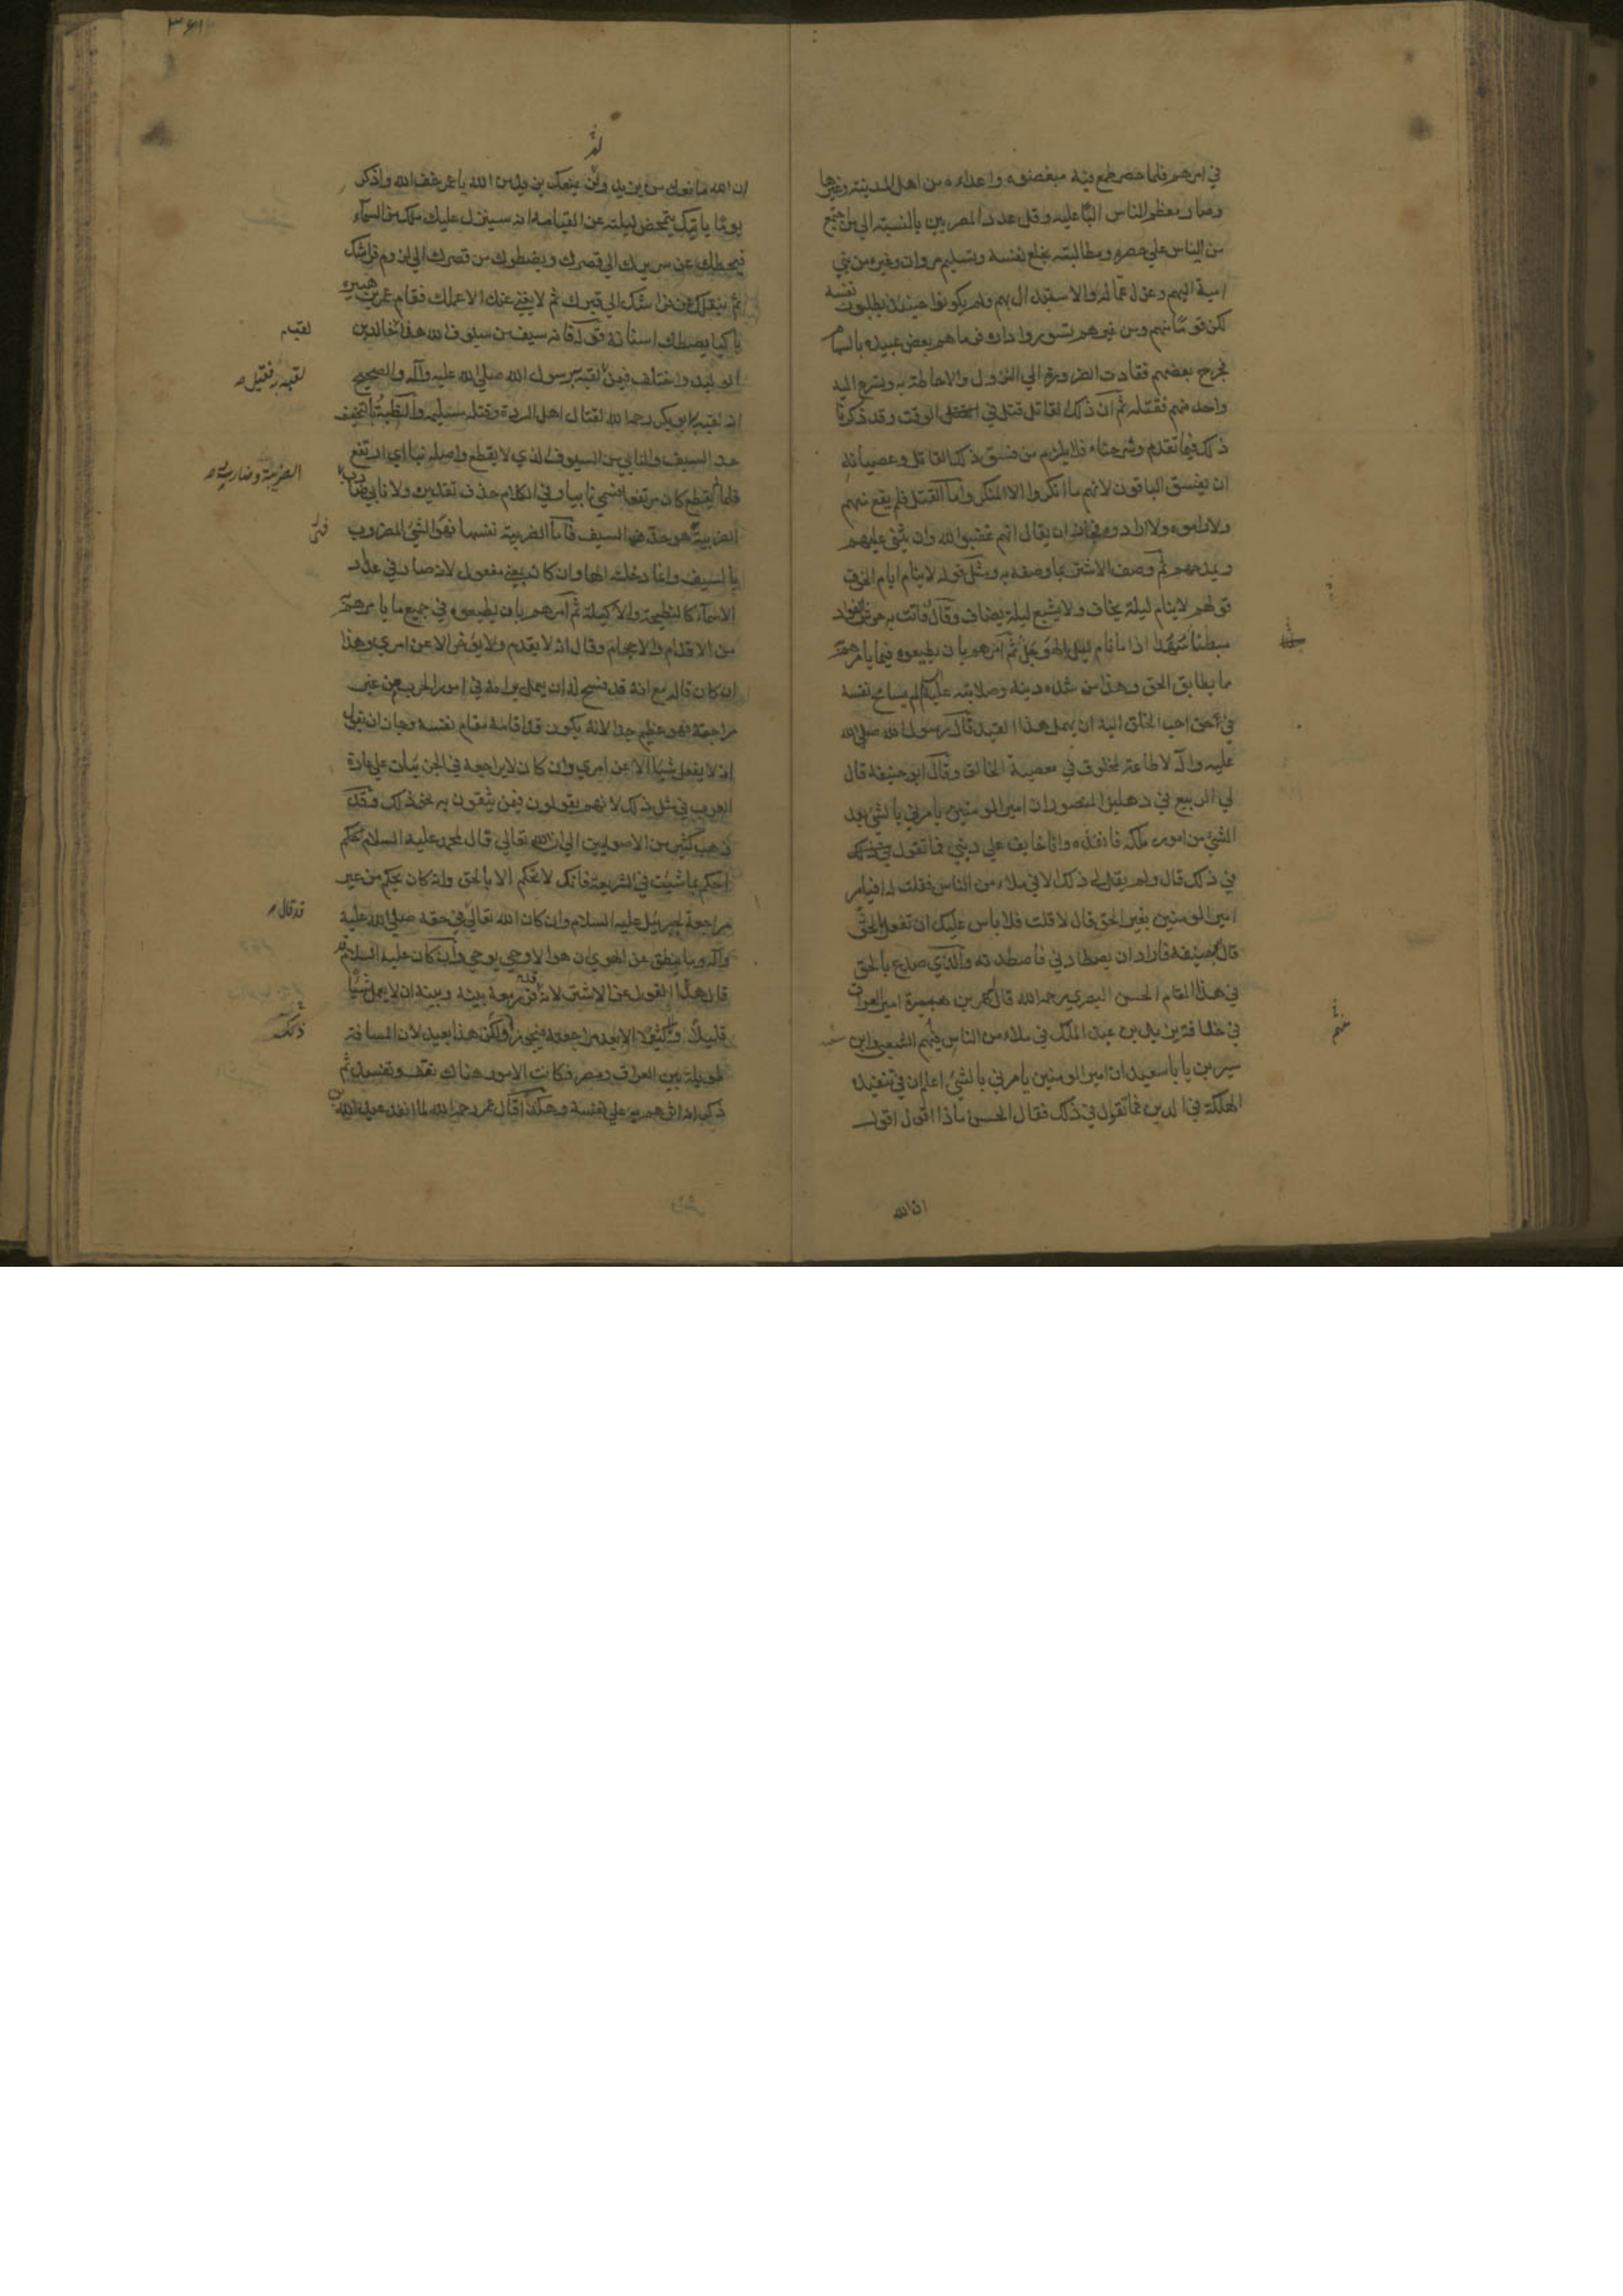 في امرهم فلما حصر طمع فيه مبغضوه واعداءه من اهل المدينة وغيرها
وصار معظم الناس البًا عليه وقل عدد المصريين بالنسبة الي من اجتمع
من الناس علي حصره ومطالبته بخلع نفسه وتسليم مروان وغيره من بني
امية اليهم وعزل عماله والاستبدال بهم ولم يكونوا حينئذ يطلبون نفسه
لكن قومًا منهم ومن غيرهم تسوروا داره فرماهم بعض عبيده بالسهام
فجرح بعضهم فقادت الضرورة الي النزول والاحاطة به وتسرع اليه
واحد منهم فقتله ثم ان ذلك القاتل قتل في الوقت وقد ذكرنا
ذلك فيما تقدم وشرحناه فلا يلزم من فسق ذلك القاتل وعصيانه
ان يفسق الباقون لانهم ما انكروا الا المنكر واما القتل فلم يقع منهم
ولا راموه ولا ارادوه فجاز ان يقال انهم غضبوا لله وان يثني عليهم
ويمدحهم ثم وصف الاشتر بما وصفه به ومثل قوله لا ينام ايام الخوف
قولهم لا ينام ليلة يخاف ولا يشبع ليلة يضاف وقال فاتت به حوش الفواد
مبطنا سهدا اذا ما نام ليل الهوجل ثم امرهم بان يطيعوه فيما يامرهم
ما يطابق الحق وهذا من شدة دينه وصلابته عليه لم يسامح نفسه
في حق احب الخلق اليه ان يهمل هذا القيد قال رسول الله صلي الله
عليه وآله لا طاعة لمخلوق في معصية الخالق وقال ابو حنيفة قال
لي الربيع في دهليز المنصور ان امير المومنين يامرني بالشئ بعد
الشئ من امور ملكه فانفذه وانا خايف علي ديني فما تقول
في ذلك قال ولم يقل لي ذلك الا في ملاء من الناس فقلت له افيامر
امير المومنين بغير الحق قال لا قلت فلا باس عليك ان تفعل بالحق
قال ابو حنيفة فاراد ان يصطادني فاصطدته والذي صدع بالحق
في هذا المقام الحسن البصري رحمه الله قال عمر بن هبيرة امير العراق
في خلافة يزيد بن عبد الملك في ملاء من الناس فيهم الشعبي وابن
سيرين يا با سعيد ان امير المومنين يامرني بالشئ اعلم ان في تنفيذه
الهلكة في الدين فما تقول في ذلك فقال الحسن ماذا اقول اقول
ان الله
٣٦١
ان الله مانعك من يزيد ولن يمنعك يزيد من الله يا عمر خف الله واذكر
يومًا ياتيك يتمخض ليلته عن القيامة انه سينزل عليك ملك من السماء
فيحطك عن سريرك الي قصرك ويضطرك من قصرك الي لزوم فراشك
ثم ينقلك عن فراشك الي قبرك ثم لا يغني عنك الا عملك فقام عمر بن هبيرة
باكيا يصطك اسنانه قوله فانه سيف من سيوف الله هذا لقب خالد بن
الوليد واختلف فيمن لقبه به رسول الله صلي الله عليه وآله والصحيح
انه لقبه به ابو بكر رحمه الله لقتاله اهل الردة وقتله مسيلمة والظبة بالتخفيف
حد السيف والنابي من السيوف الذي لا يقطع واصله نبا اي ارتفع
فلما لم يقطع كان مرتفعا فسمي نابيا وفي الكلام حذف تقديره ولا نابي ضارب
الضريبة هو حد السيف فاما الضريبة نفسها فهو الشئ المضروب
بالسيف وانما دخلته الها وان كان بمعني مفعول لانه صار في عداد
الاسماء كالنطيحة والاكيلة ثم امرهم بان يطيعوه في جميع ما يامرهم
من الاقدام والاحجام وقال انه لا يقدم ولا يؤخر الا عن امري وهذا
ان كان قاله مع انه قد فسح له ان يعمل برايه في امور الحرب من غير
مراجعة فهو عظيم جدا لانه يكون قد اقامه مقام نفسه وجاز ان يقول
انه لا يفعل شيا الا عن امري وان كان لا يراجعه في الجزئيات علي عادة
العرب في مثل ذلك لانهم يقولون فيمن يثقون به نحو ذلك وقد
ذهب كثير من الاصوليين الي ان الله تعالي قال لمحمد عليه السلام
احكم بما شئت في الشريعة فانك لا تحكم الا بالحق وانه كان يحكم من غير
مراجعة لجبرئيل عليه السلام وان كان الله تعالي في حقه صلي الله عليه
وآله وما ينطق عن الهوي ان هو الا وحي يوحي وان كان عليه السلام
قال هذا القول عن الاشتر لانه قد قرر معه بينه وبينه ان لا يعمل شيًا
قليلا ولا كثيرا الا بعد مراجعته فيجوز ولكن هذا بعيد لان المسافة
طويلة بين العراق ومصر فكانت الامور هناك تقف وتفسد ثم
ذكر انه اثرهم به علي نفسه وهكذا قال عمر رحمه الله لما انفذ عبد الله بن
قد قال
ذلك